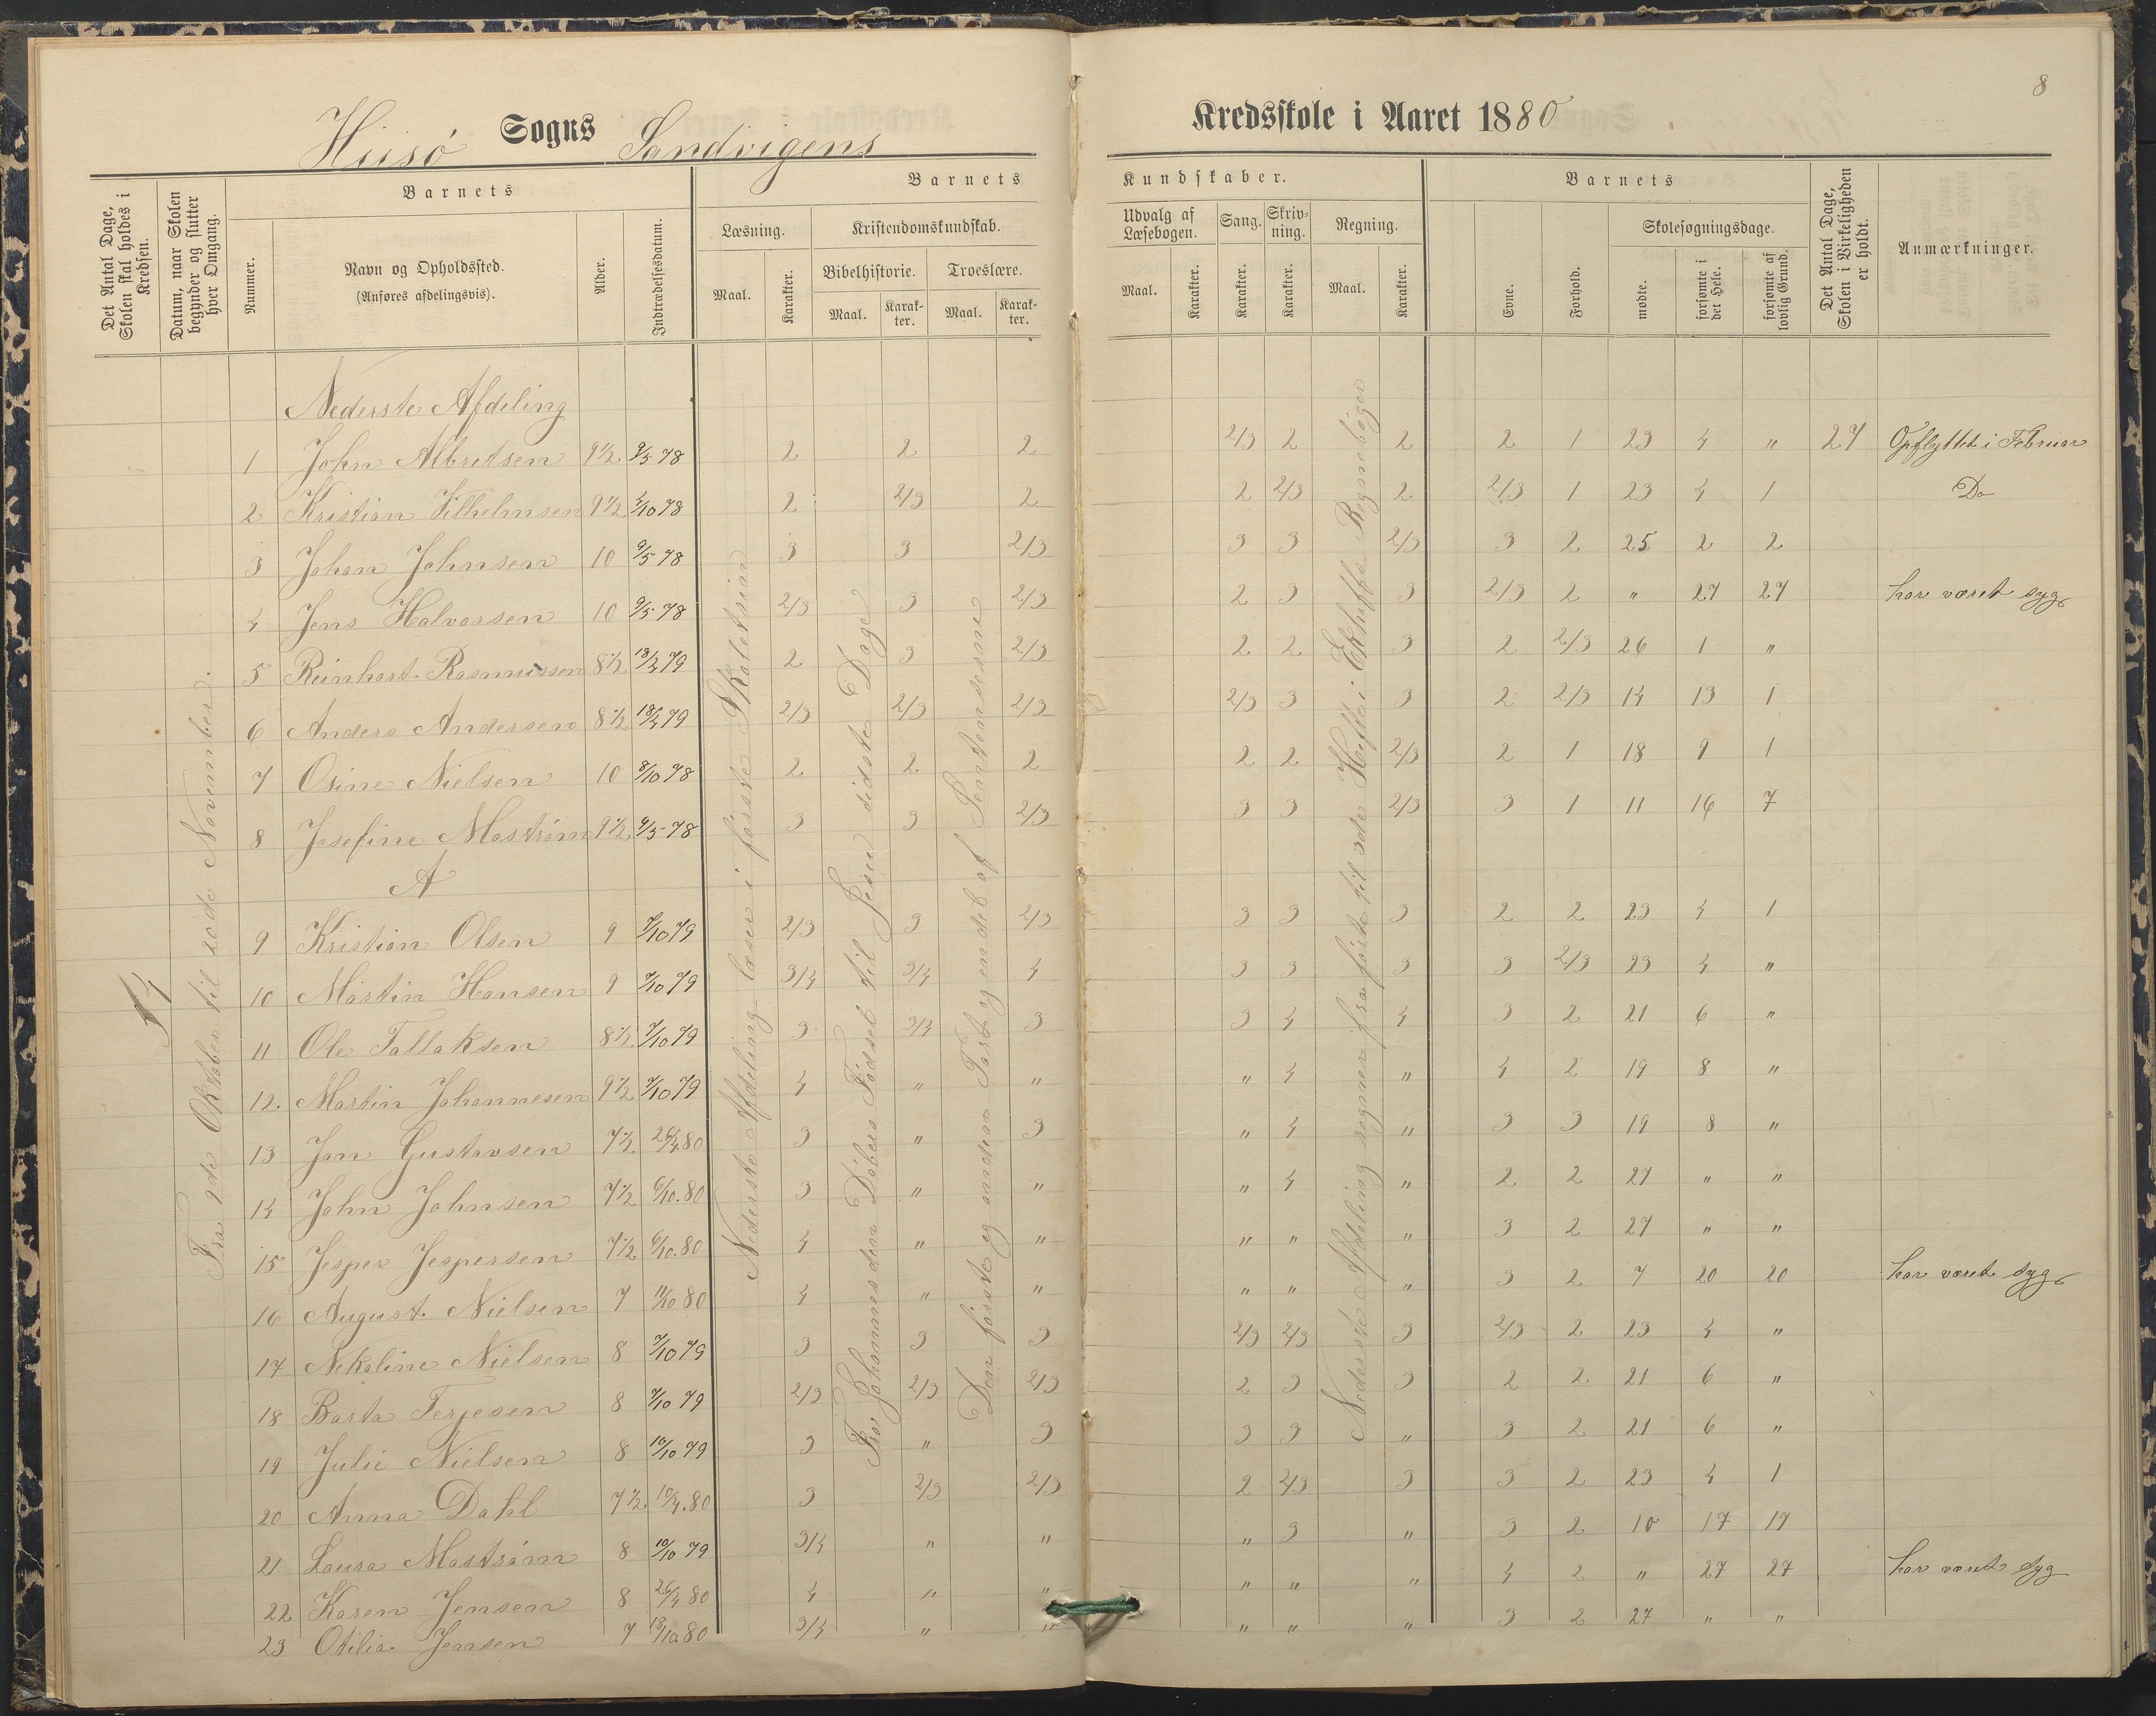 8
Hiisö Sogns Sandvigens Kredsskole i Aaret 1880
Det Antal Dage, Skolen skal holdes i Kredsen.
Datum, naar Skolen begynder og slutter hver Omgang.
Nummer.
Barnets
Navn og Opholdssted.
(Anføres afdelingsvis).
Alder.
Indtrædelsesdatum.
Barnets Kundskaber.
Læsning.
Maal.
Karakter.
Kristendomskundskab.
Bibelhistorie.
Maal.
Karakter.
Troeslære.
Maal.
Karakter.
Udvalg af Læsebogen.
Maal.
Karakter.
Sang.
Karakter.
Skrivning.
Karakter.
Regning.
Maal.
Karakter.
Barnets
Evne.
Forhold.
Skolesøgningsdage.
mødte.
forsømte i det Hele.
forsømte af lovlig Grund.
Det Antal Dage, Skolen i Virkeligheden er holdt.
Anmærkninger.
Fra 2de Oktober til 20de November.
Nederste Afdeling læser i første Skoletrin
Fra Johannes den Døbers Fødsel til Jesu sidste Dage
Den første og anden Part og endel af Sentenserne
Nederste Afdeling regner fra første til 3de Hefte i Eckhoffs Regnebøger
Nederste Afdeling
1 John Albretsen 9½ 9/5 78 2 2 2 2/3 2 2 2 1 23 4 " 27 Opflyttet i Februar
2 Kristian Vilhelmsen 9½ 4/10 78 2 2/3 2 2 2/3 2 2/3 1 23 4 1 Do
3 Johan Johnsen 10 9/5 78 3 3 2/3 3 3 2/3 3 2 25 2 2
4 Jens Halvorsen 10 9/5 78 2/3 3 2/3 2 3 3 2/3 2 " 27 27 har været syg
5 Reinhart Rasmussen 8½ 18/2 79 2 3 2/3 2 2 3 2 2/3 26 1 "
6 Anders Andersen 8½ 18/2 79 2/3 2/3 2/3 2/3 3 3 2 2/3 14 13 1
7 Osine Nielsen 10 8/10 78 2 2 2 2 2 2/3 2 1 18 9 1
8 Josefine Mostrøm 9½ 9/5 78 3 3 2/3 3 3 2/3 3 1 11 16 7
A
9 Kristian Olsen 9 7/10 79 2/3 3 2/3 3 3 3 2 2 23 4 1
10 Martin Hansen 9 7/10 79 3/4 3/4 4 3 3 3 3 2/3 23 4 "
11 Ole Tallaksen 8½ 7/10 79 3 3/4 3 3 4 4 3 2 21 6 "
12. Martin Johannesen 9½ 7/10 79 4 " " " 4 " 4 2 19 8 "
13 Jan Gustavsen 7½ 26/4 80 3 " 3 " 4 " 3 3 19 8 "
14 John Johnsen 7½ 6/10. 80 3 " " " 4 " 2 2 27 " "
15 Jesper Jespersen 7½ 6/10. 80 4 " " " " " 3 2 27 " "
16 August Nielsen 7 11/10 80 4 " " " " " 3 2 7 20 20 har været syg
17 Nikoline Nielsen 8 7/10 79 3 3 3 2/3 2/3 3 2/3 2 23 4 "
18 Barta Terjesen 8 7/10 79 2/3 2/3 2/3 2 3 3 2 2 21 6 "
19 Julie Nielsen 8 10/10 79 3 " 3 3 3 " 3 2 21 6 "
20 Anna Dahl 7½ 10/4. 80 3 2/3 2/3 2 2/3 3 3 2 23 4 1
21 Laura Mostrøm 8 10/10 79 3/4 " " " 3 " 3 2 10 17 17
22 Karen Jensen 8 26/4 80 4 " " " " " 4 2 " 27 27 har været syg
23 Otilia Jensen 7 18/10 80 3/4 " " " " " 3 2 27 " "